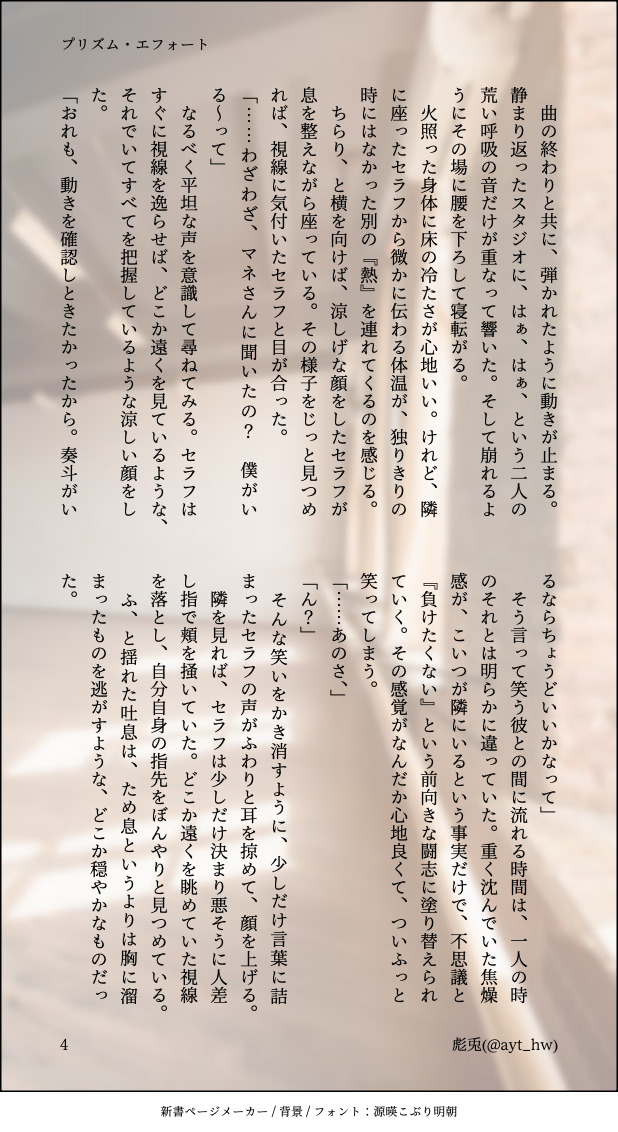 プリズム・エフォート
　曲の終わりと共に、弾かれたように動きが止まる。
静まり返ったスタジオに、はぁ、はぁ、という二人の
荒い呼吸の音だけが重なって響いた。そして崩れるよ
うにその場に腰を下ろして寝転がる。
　火照った身体に床の冷たさが心地いい。けれど、隣
に座ったセラフから微かに伝わる体温が、独りきりの
時にはなかった別の『熱』を連れてくるのを感じる。
　ちらり、と横を向けば、涼しげな顔をしたセラフが
息を整えながら座っている。その様子をじっと見つめ
れば、視線に気付いたセラフと目が合った。
「……わざわざ、マネさんに聞いたの？　僕がい
る〜って」
　なるべく平坦な声を意識して尋ねてみる。セラフは
すぐに視線を逸らせば、どこか遠くを見ているような、
それでいてすべてを把握しているような涼しい顔をし
た。
「おれも、動きを確認しときたかったから。奏斗がい
るならちょうどいいかなって」
　そう言って笑う彼との間に流れる時間は、一人の時
のそれとは明らかに違っていた。重く沈んでいた焦燥
感が、こいつが隣にいるという事実だけで、不思議と
『負けたくない』という前向きな闘志に塗り替えられ
ていく。その感覚がなんだか心地良くて、ついふっと
笑ってしまう。
「……あのさ、」
「ん？」
　そんな笑いをかき消すように、少しだけ言葉に詰
まったセラフの声がふわりと耳を掠めて、顔を上げる。
　隣を見れば、セラフは少しだけ決まり悪そうに人差
し指で頬を掻いていた。どこか遠くを眺めていた視線
を落とし、自分自身の指先をぼんやりと見つめている。
　ふ、と揺れた吐息は、ため息というよりは胸に溜
まったものを逃がすような、どこか穏やかなものだっ
た。
4
彪兎(@ayt_hw)
新書ページメーカー / 背景 / フォント：源暎こぶり明朝